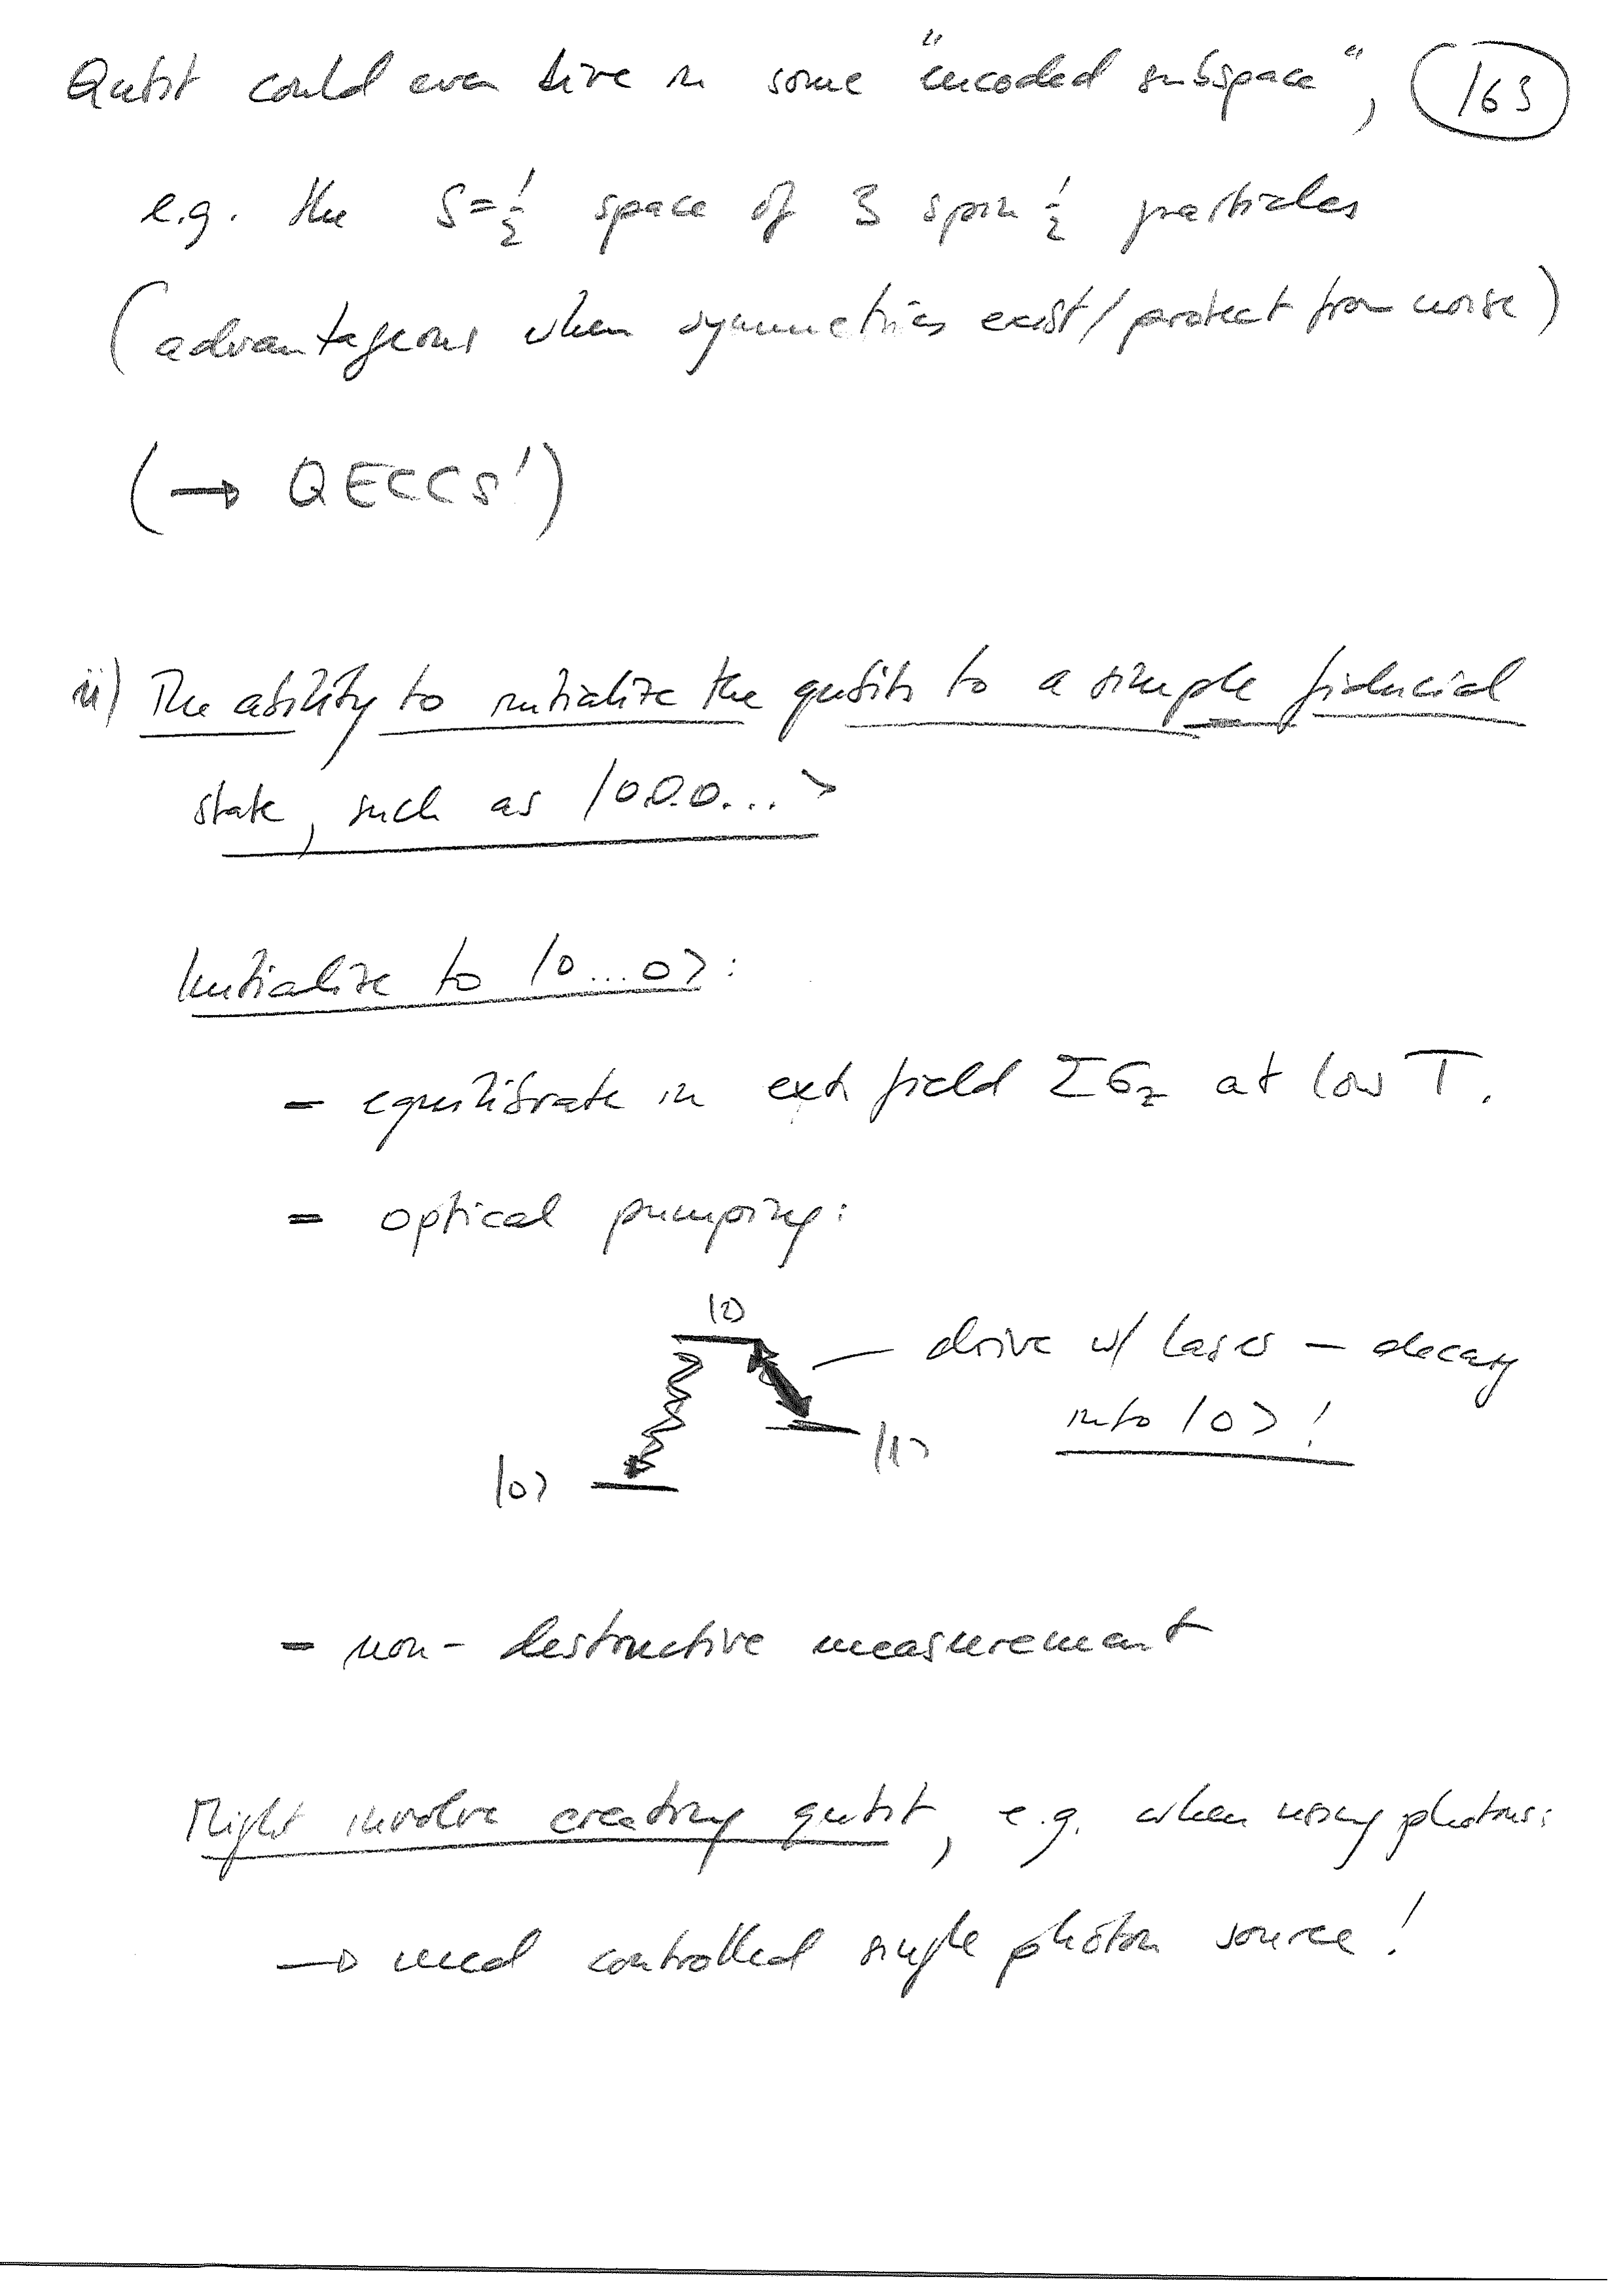 Qubit could even live in some "encoded subspace", 163
e.g. the S=½ space of 3 spin ½ particles
(advantageous when symmetries exist/protect from noise)
(→ QECCs!)
ii) The ability to initialize the qubits to a simple fiducial
state, such as |000...>
Initialize to |0...0>:
- equilibrate in ext. field Σσz at low T.
- optical pumping:
|2>
drive w/ laser - decay
into |0>!
|1>
|0>
- non-destructive measurement
Might involve creating qubit, e.g. when using photons:
→ need controlled single photon source!